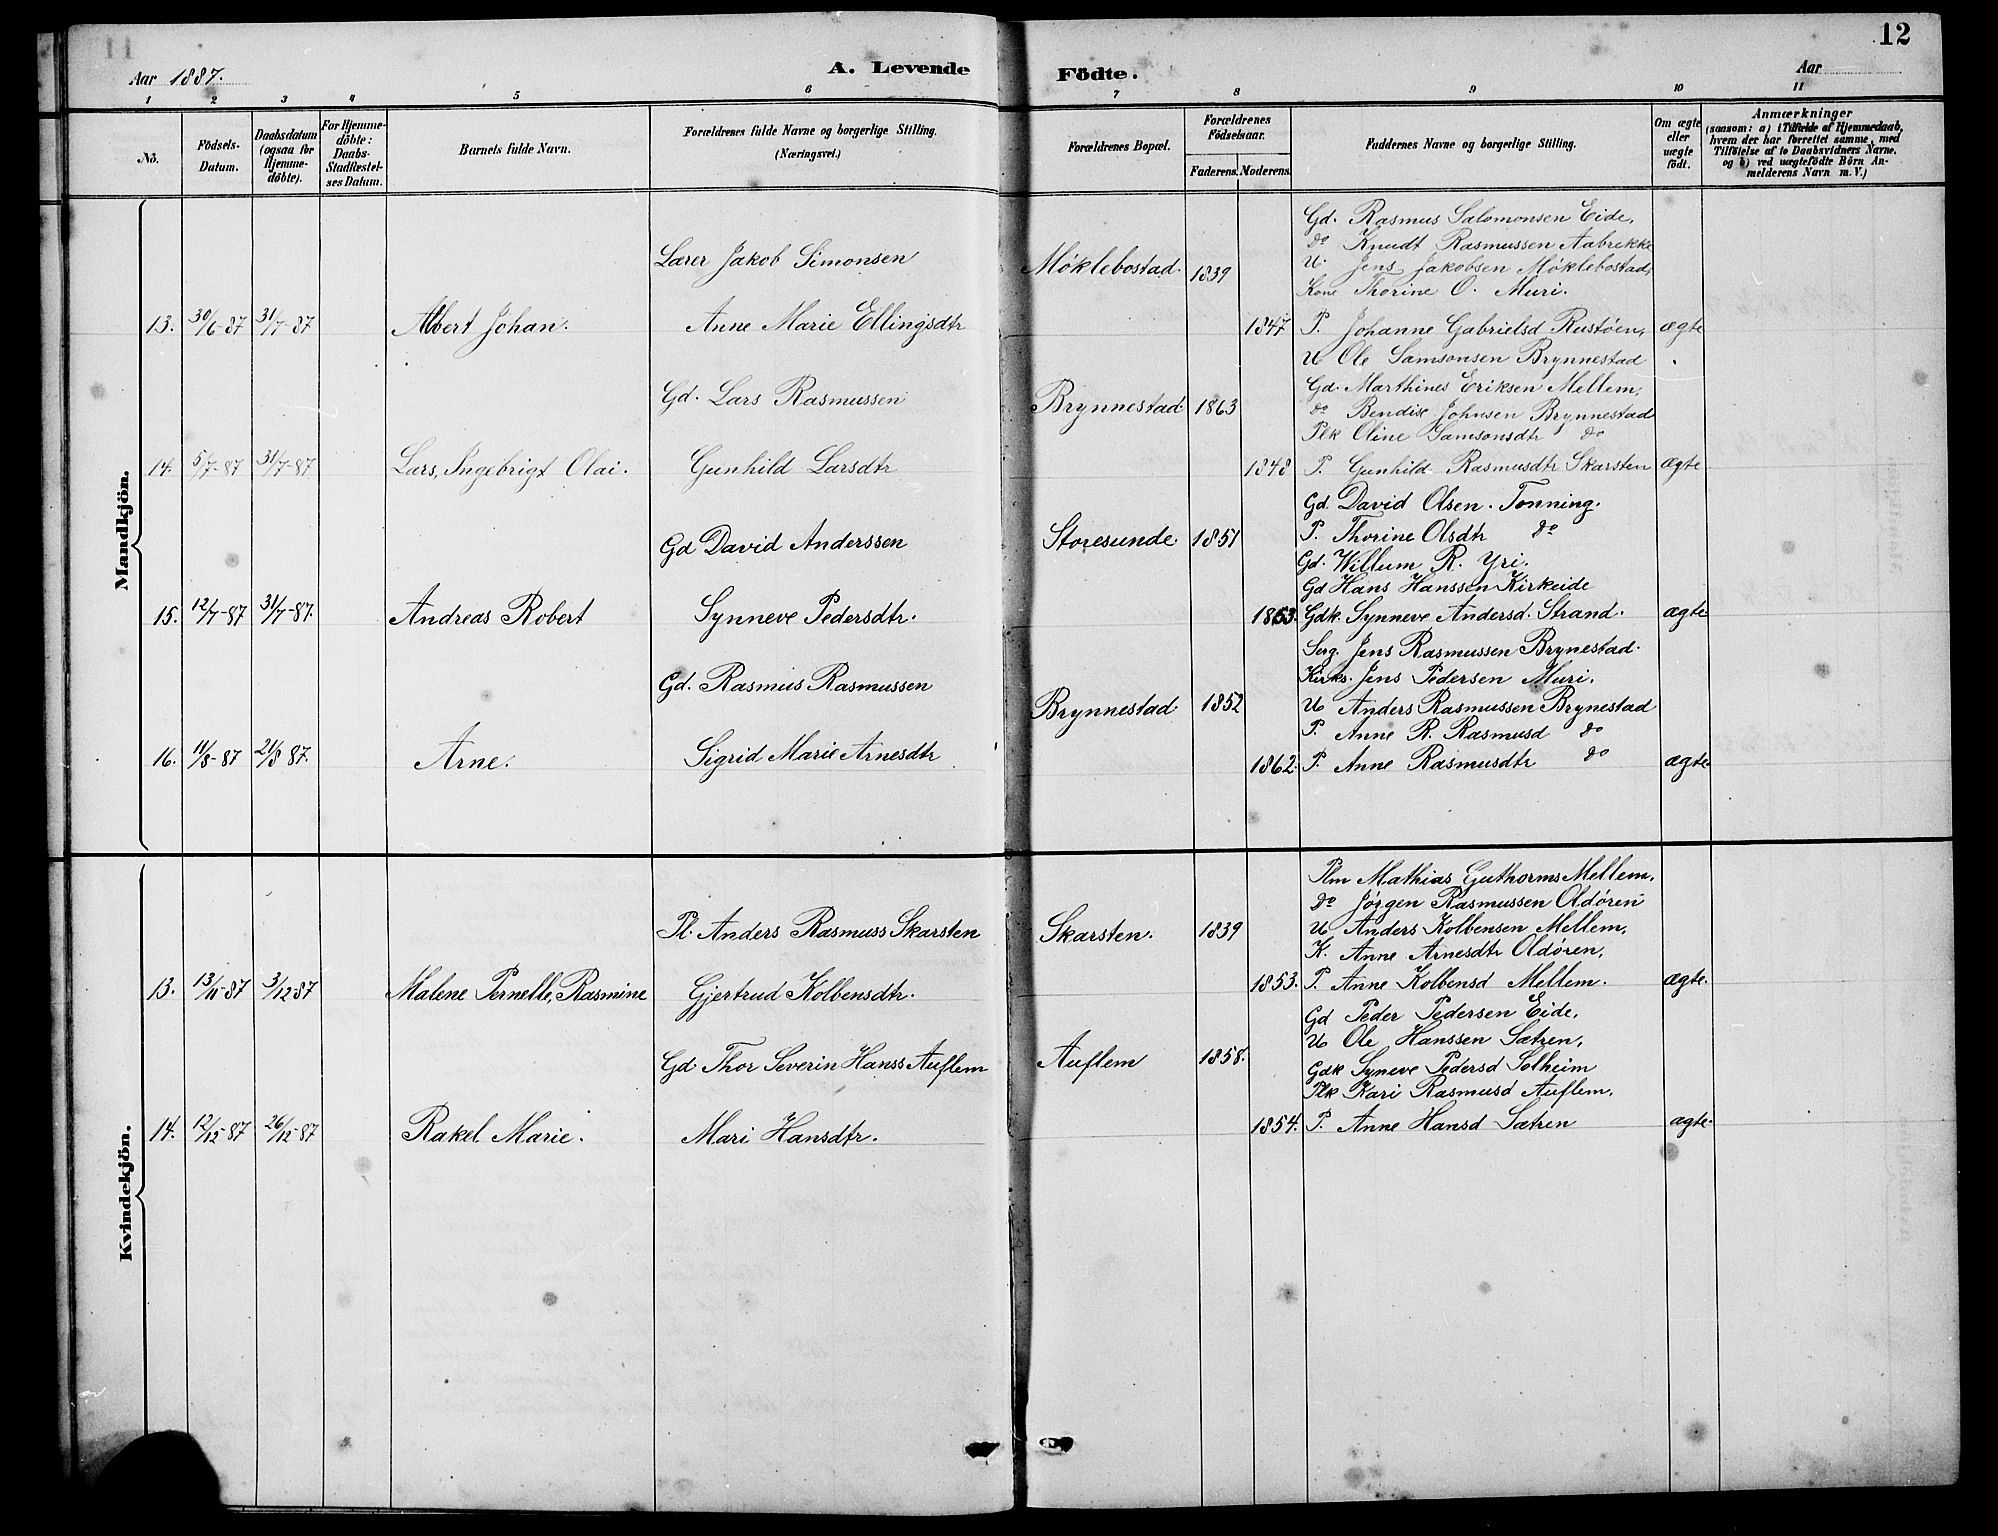 12
Aar 1887.
A. Levende Födte.
Aar
1 2 3 4 5 6 7 8 9 10 11
No.
Födsels-Datum.
Daabsdatum (ogsaa for Hjemme-döbte).
For Hjemme-döbte: Daabs-Stadfæstel-ses Datum.
Barnets fulde Navn.
Forældrenes fulde Navne og borgerlige Stilling.
(Næringsvei.)
Forældrenes Bopæl.
Forældrenes Födselsaar.
Faderens. Moderens.
Faddernes Navne og borgerlige Stilling.
Om ægte eller uægte födt.
Anmærkninger
(saasom: a) i Tilfælde af Hjemmedaab,
hvem der har forrettet samme, med
Tilföielse af to Daabsvidners Navne,
og b) ved uægtefödte Börn An-
melderens Navn m. V.)
Mandkjön.
Gd. Rasmus Salomonsen Eide,
do Knudt Rasmussen Aabrekke
Lærer Jakob Simonsen Møklebostad. 1839 U. Jens Jakobsen Møklebostad,
Kone Thorine O. Muri.
13. 30/6-87 31/7-87 Albert Johan. Anne Marie Ellingsdtr 1847 P. Johanne Gabrielsd Rustøen, ægte
U Ole Samsonsen Brynnestad
Gd. Marthines Eriksen Mellem,
Gd. Lars Rasmussen Brynnestad 1863 do Bendix Johnsen Brynnestad
Plk Oline Samsonsdtr do
14. 5/7-87 31/7-87 Lars, Ingebrigt Olai. Gunhild Larsdtr 1848 P. Gunhild Rasmusdtr Skarsten ægte
Gd David Olsen. Tonning.
Gd David Anderssen Storesunde 1851 P. Thorine Olsdtr do
Gd. Willum R. Yri.
Gd Hans Hanssen Kirkeide
15. 12/7-87 31/7-87. Andreas Robert Synneve Pedersdtr. 1853. Gdk. Synneve Andersd. Strand. ægte
Serg. Jens Rasmussen Brynestad.
Kirks. Jens Pedersen Muri.
Gd. Rasmus Rasmussen Brynnestad 1852 U Anders Rasmussen Brynestad
P. Anne R. Rasmusd do
16. 11/8-87 21/8 87. Arne. Sigrid Marie Arnesdtr 1862. P. Anne Rasmusdtr do ægte
Kvindekjön.
Plm Mathias Guthorms Mellem,
do Jørgen Rasmussen Oldøren
Pl. Anders Rasmuss Skarsten Skarsten. 1839 U Anders Kolbensen Mellem,
K. Anne Arnesdtr Oldøren,
13. 13/11-87 3/12 87 Malene Pernelle, Rasmine Gjertrud Kolbensdtr. 1853. P. Anne Kolbensd Mellem. ægte.
Gd Peder Pedersen Eide,
U Ole Hanssen Sætren,
Gd Thor Severin Hanss Auflem Auflem 1858. Gdk Syneve Pedersd Solheim
Plk Kari Rasmusd Auflem,
14. 12/12-87 26/12-87 Rakel Marie. Mari Hansdtr. 1854. P. Anne Hansd Sætren ægte.